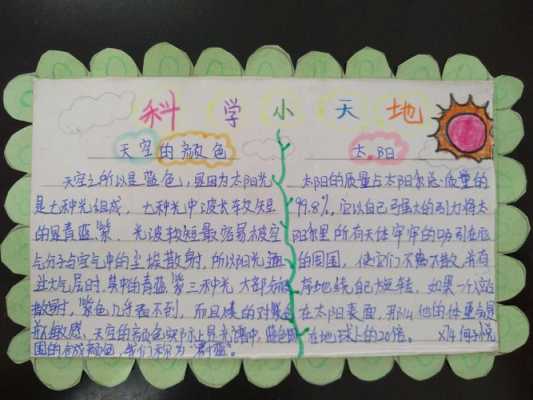 科学小天地
天空的颜色
天空之所以是蓝色,是因为太阳光
是七种光组成,七种光中波长较短
的是青蓝紫,光波较短最容易被空
气分子与空气中的尘埃散射,所以阳光通
过大气层时,其中的青蓝紫三种光大部分被
散射,紫色几乎看不到,而且人的对紫色
敏感,天空的颜色实际上是光谱中蓝色
围的合成颜色,我们称为"蔚蓝"。
太阳
太阳的质量占太阳系总质量的
99.8%,它以自己强大的引力将太
阳系里所有天体牢牢的吸引在它
的周围,使它们不离不散,并有
序地绕自己旋转,如果一个人站
在太阳表面,那么他的体重会是
在地球上的20倍。